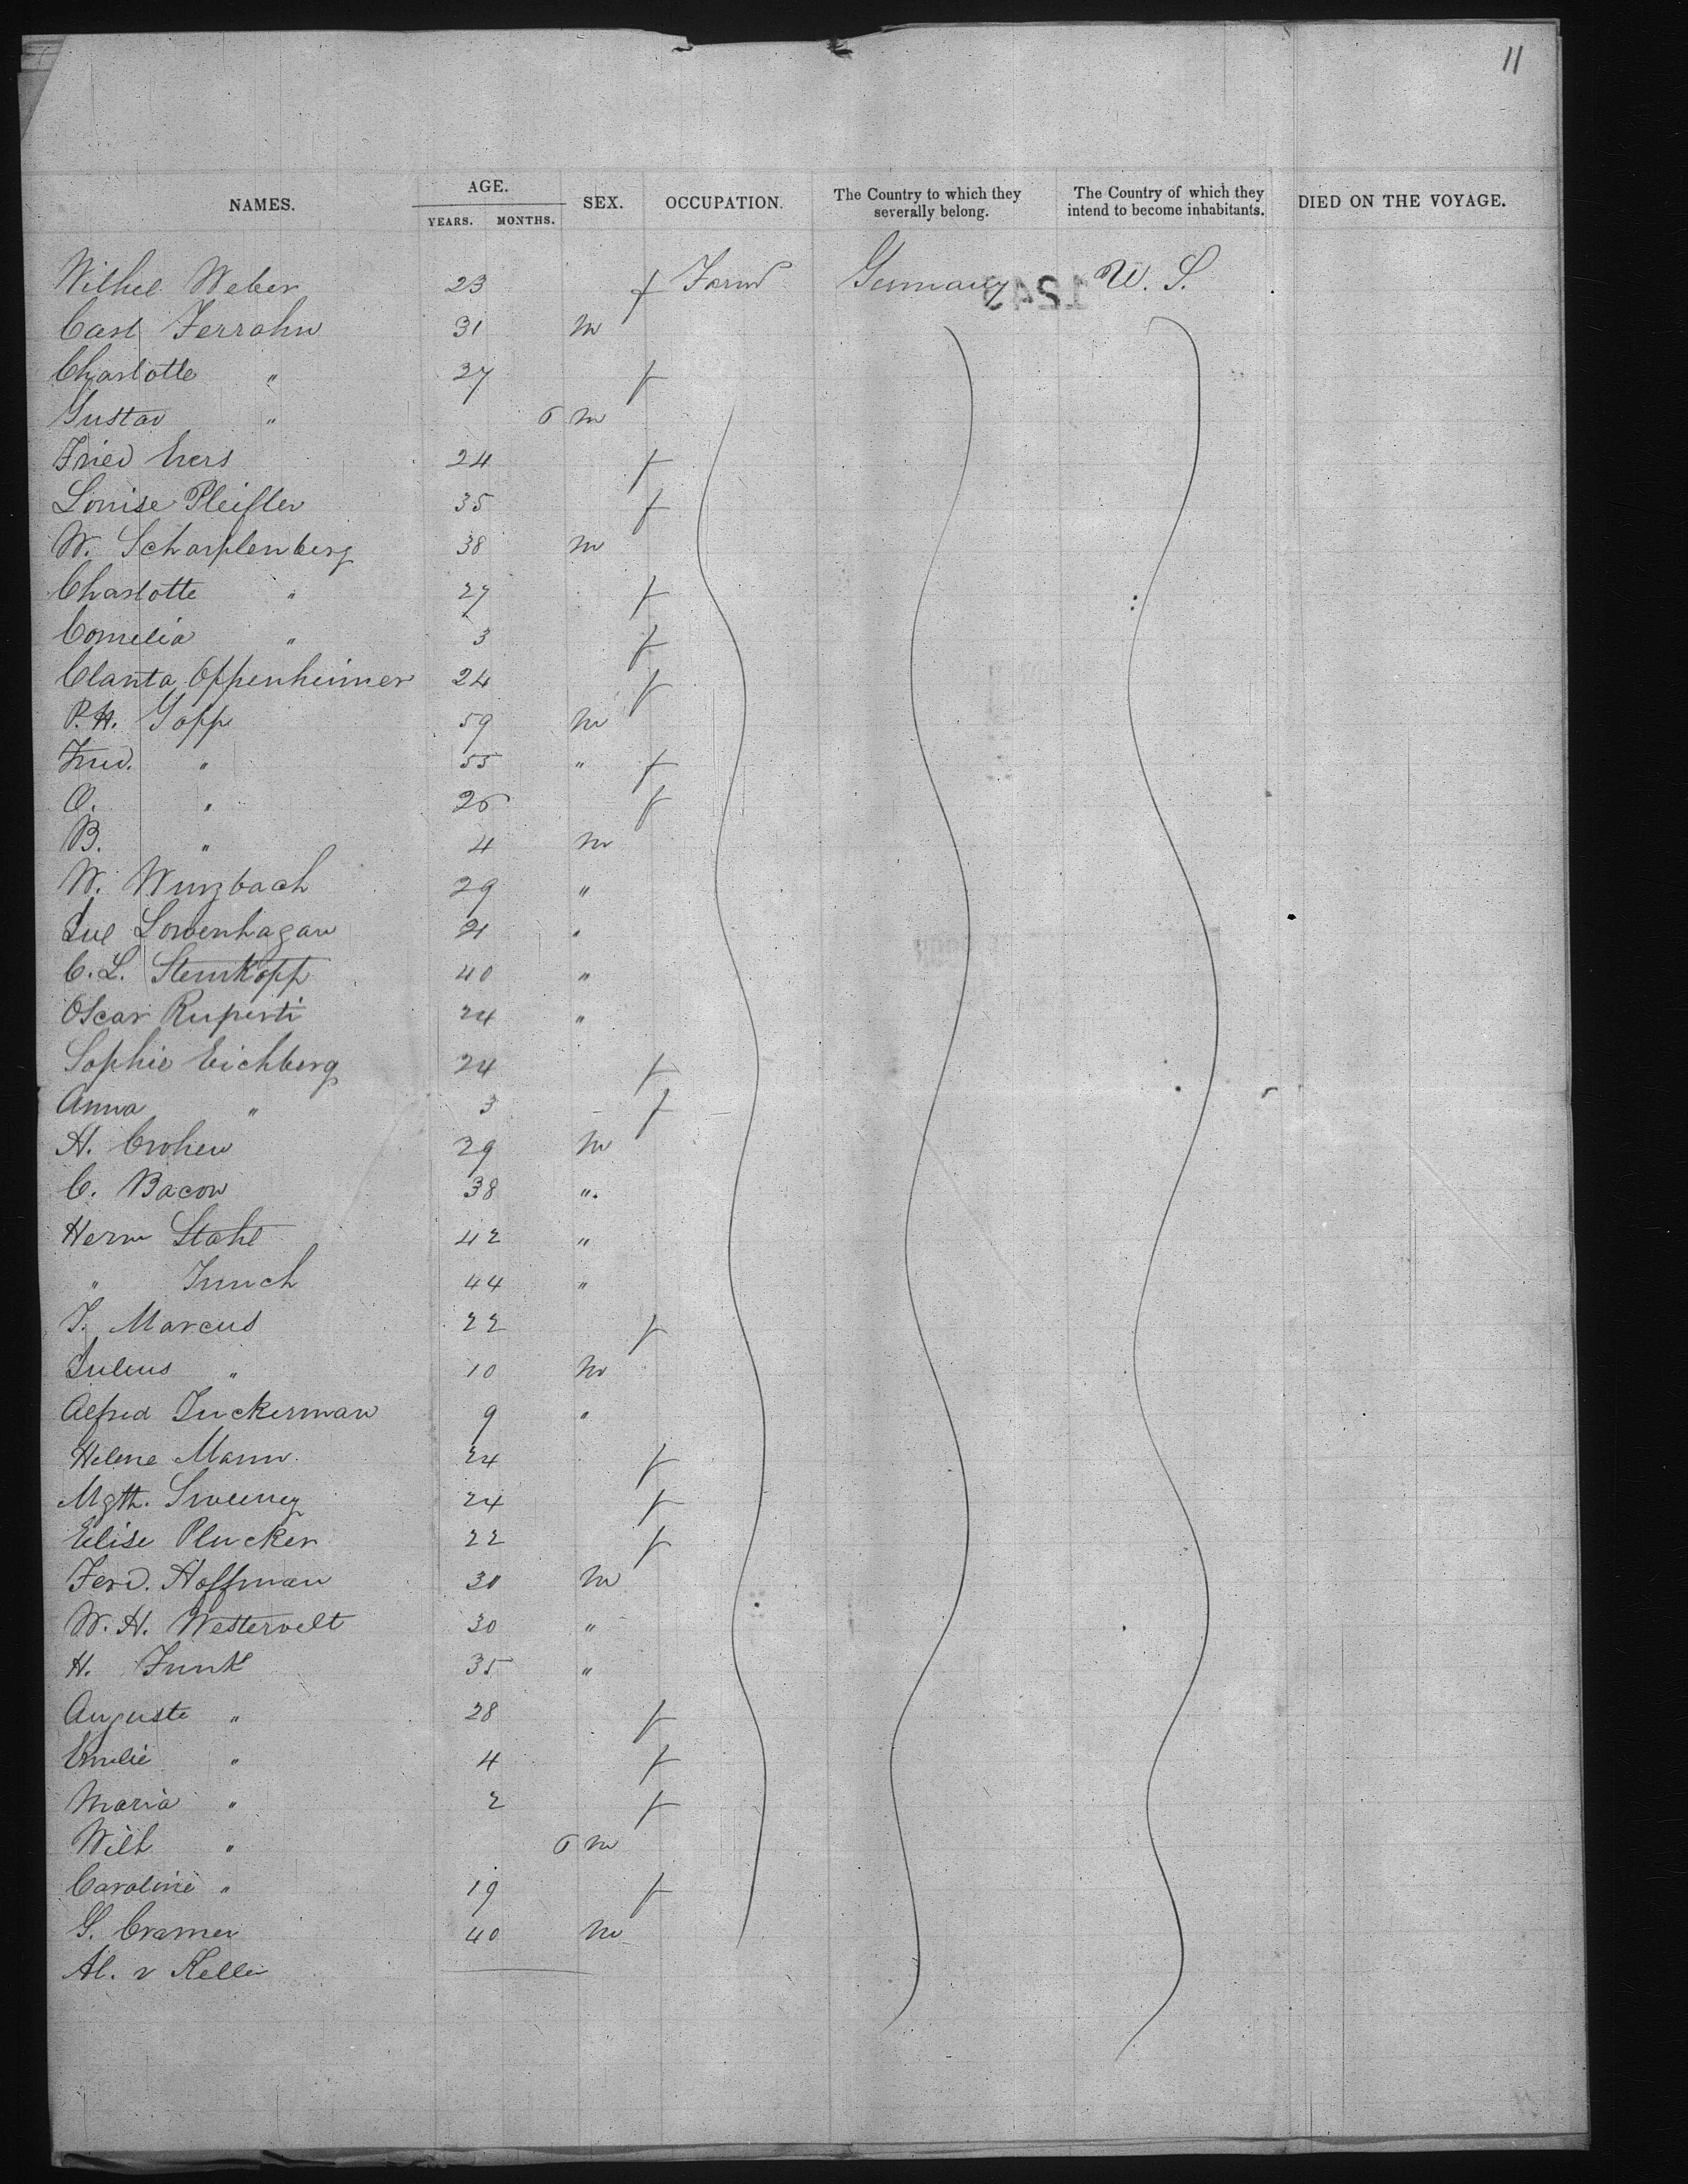 11
NAMES. AGE. YEARS. MONTHS. SEX. OCCUPATION. The Country to which they severally belong. The Country of which they intend to become inhabitants. DIED ON THE VOYAGE.
Wilhel Weber 23 f Farmr Germany U. S.
Carl Ferrohn 31 m
Charlotte " 27 f
Gustav " 6 m
Fried Evers 24 f
Louise Pleifler 35 f
W. Scharplenberg 38 m
Charlotte " 27 f
Cornelia " 3 f
Clanta Oppenheimer 24 f
P. H. Gopp 59 m
Fried. " 55 " f
O. " 26 f
B. " 4 m
W. Wurzbach 29 "
Jul Lowenhagan 21 "
C. L. Steinkopp 40 "
Oscar Ruperti 24 "
Sophie Eichberg 24 f
Anna " 3 f
H. Crohen 29 m
C. Bacon 38 ".
Herm Stahl 42 "
" Junch 44 "
J. Marcus 22 f
Julius " 10 m
Alfred Zuckerman 9 "
Helene Mann 24 f
Mgth. Sweeney 24 f
Elise Plucker 22 f
Ferd. Hoffman 30 m
W. H. Westervelt 30 "
H. Funk 35 "
Auguste " 28 f
Emilie " 4 f
Maria " 2 f
Wilh " 6 m
Caroline " 19 f
G. Cramer 40 m
Al. v Keller